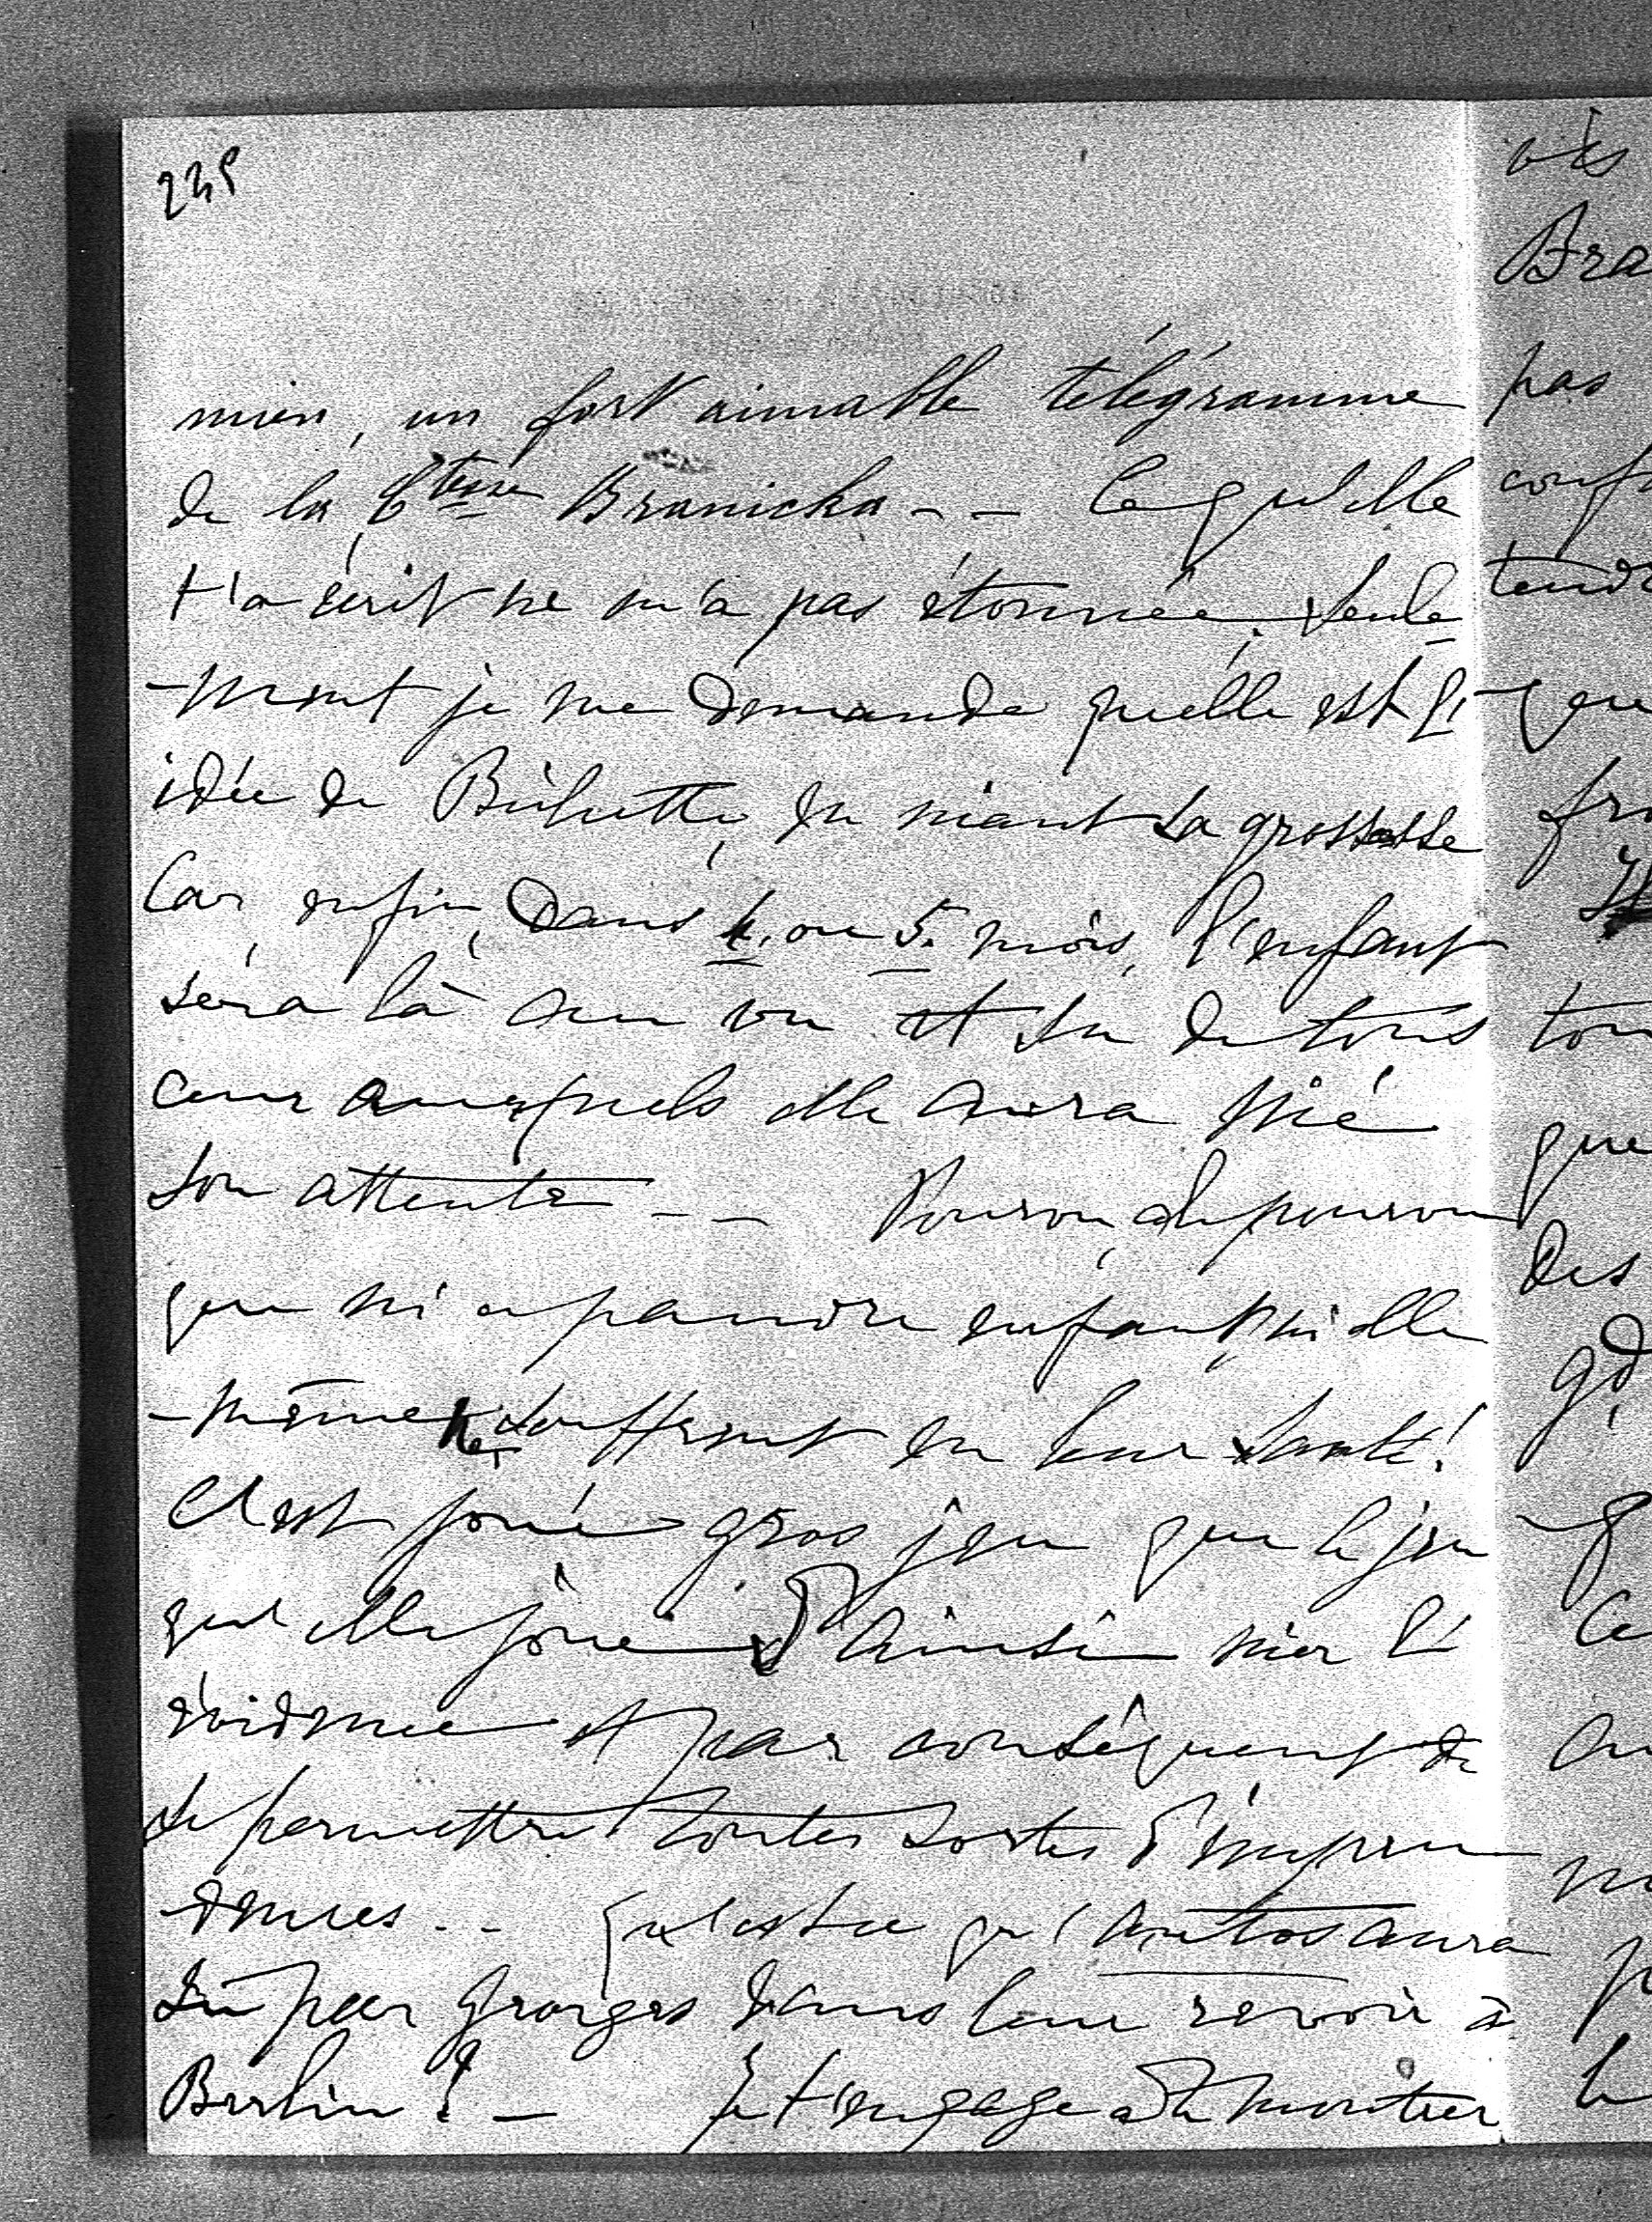 239
mien, un fort aimable télégramme
de la Ctesse Branicka -- Ce qu'elle
t'a écrit ne m'a pas étonnée. Seule
-ment je me demande quelle est l'
idée de en niant sa grossesse
Car, enfin, dans 4. ou 5. mois, l'enfant
sera là au vu et su de tous
ceux auxquels elle aura nié
son attente -- Pourvu, ah pourvu
que ni ce pauvre enfant, ni elle
-même ne souffrent en leur santé!
C'est joué gros jeu que le jeu
qu'elle joue d'ainsi nier l'
évidence et par conséquent de
se permettre toutes sortes d'impru
-dences -- Qu'est-ce qu'Antos aura
su par Georges dans leur revoir à
Berlin? - Je t'engage à te montrer
vis
Bra
pas
conf
tend
que
fr
tou
que
des
gd
Ce
au